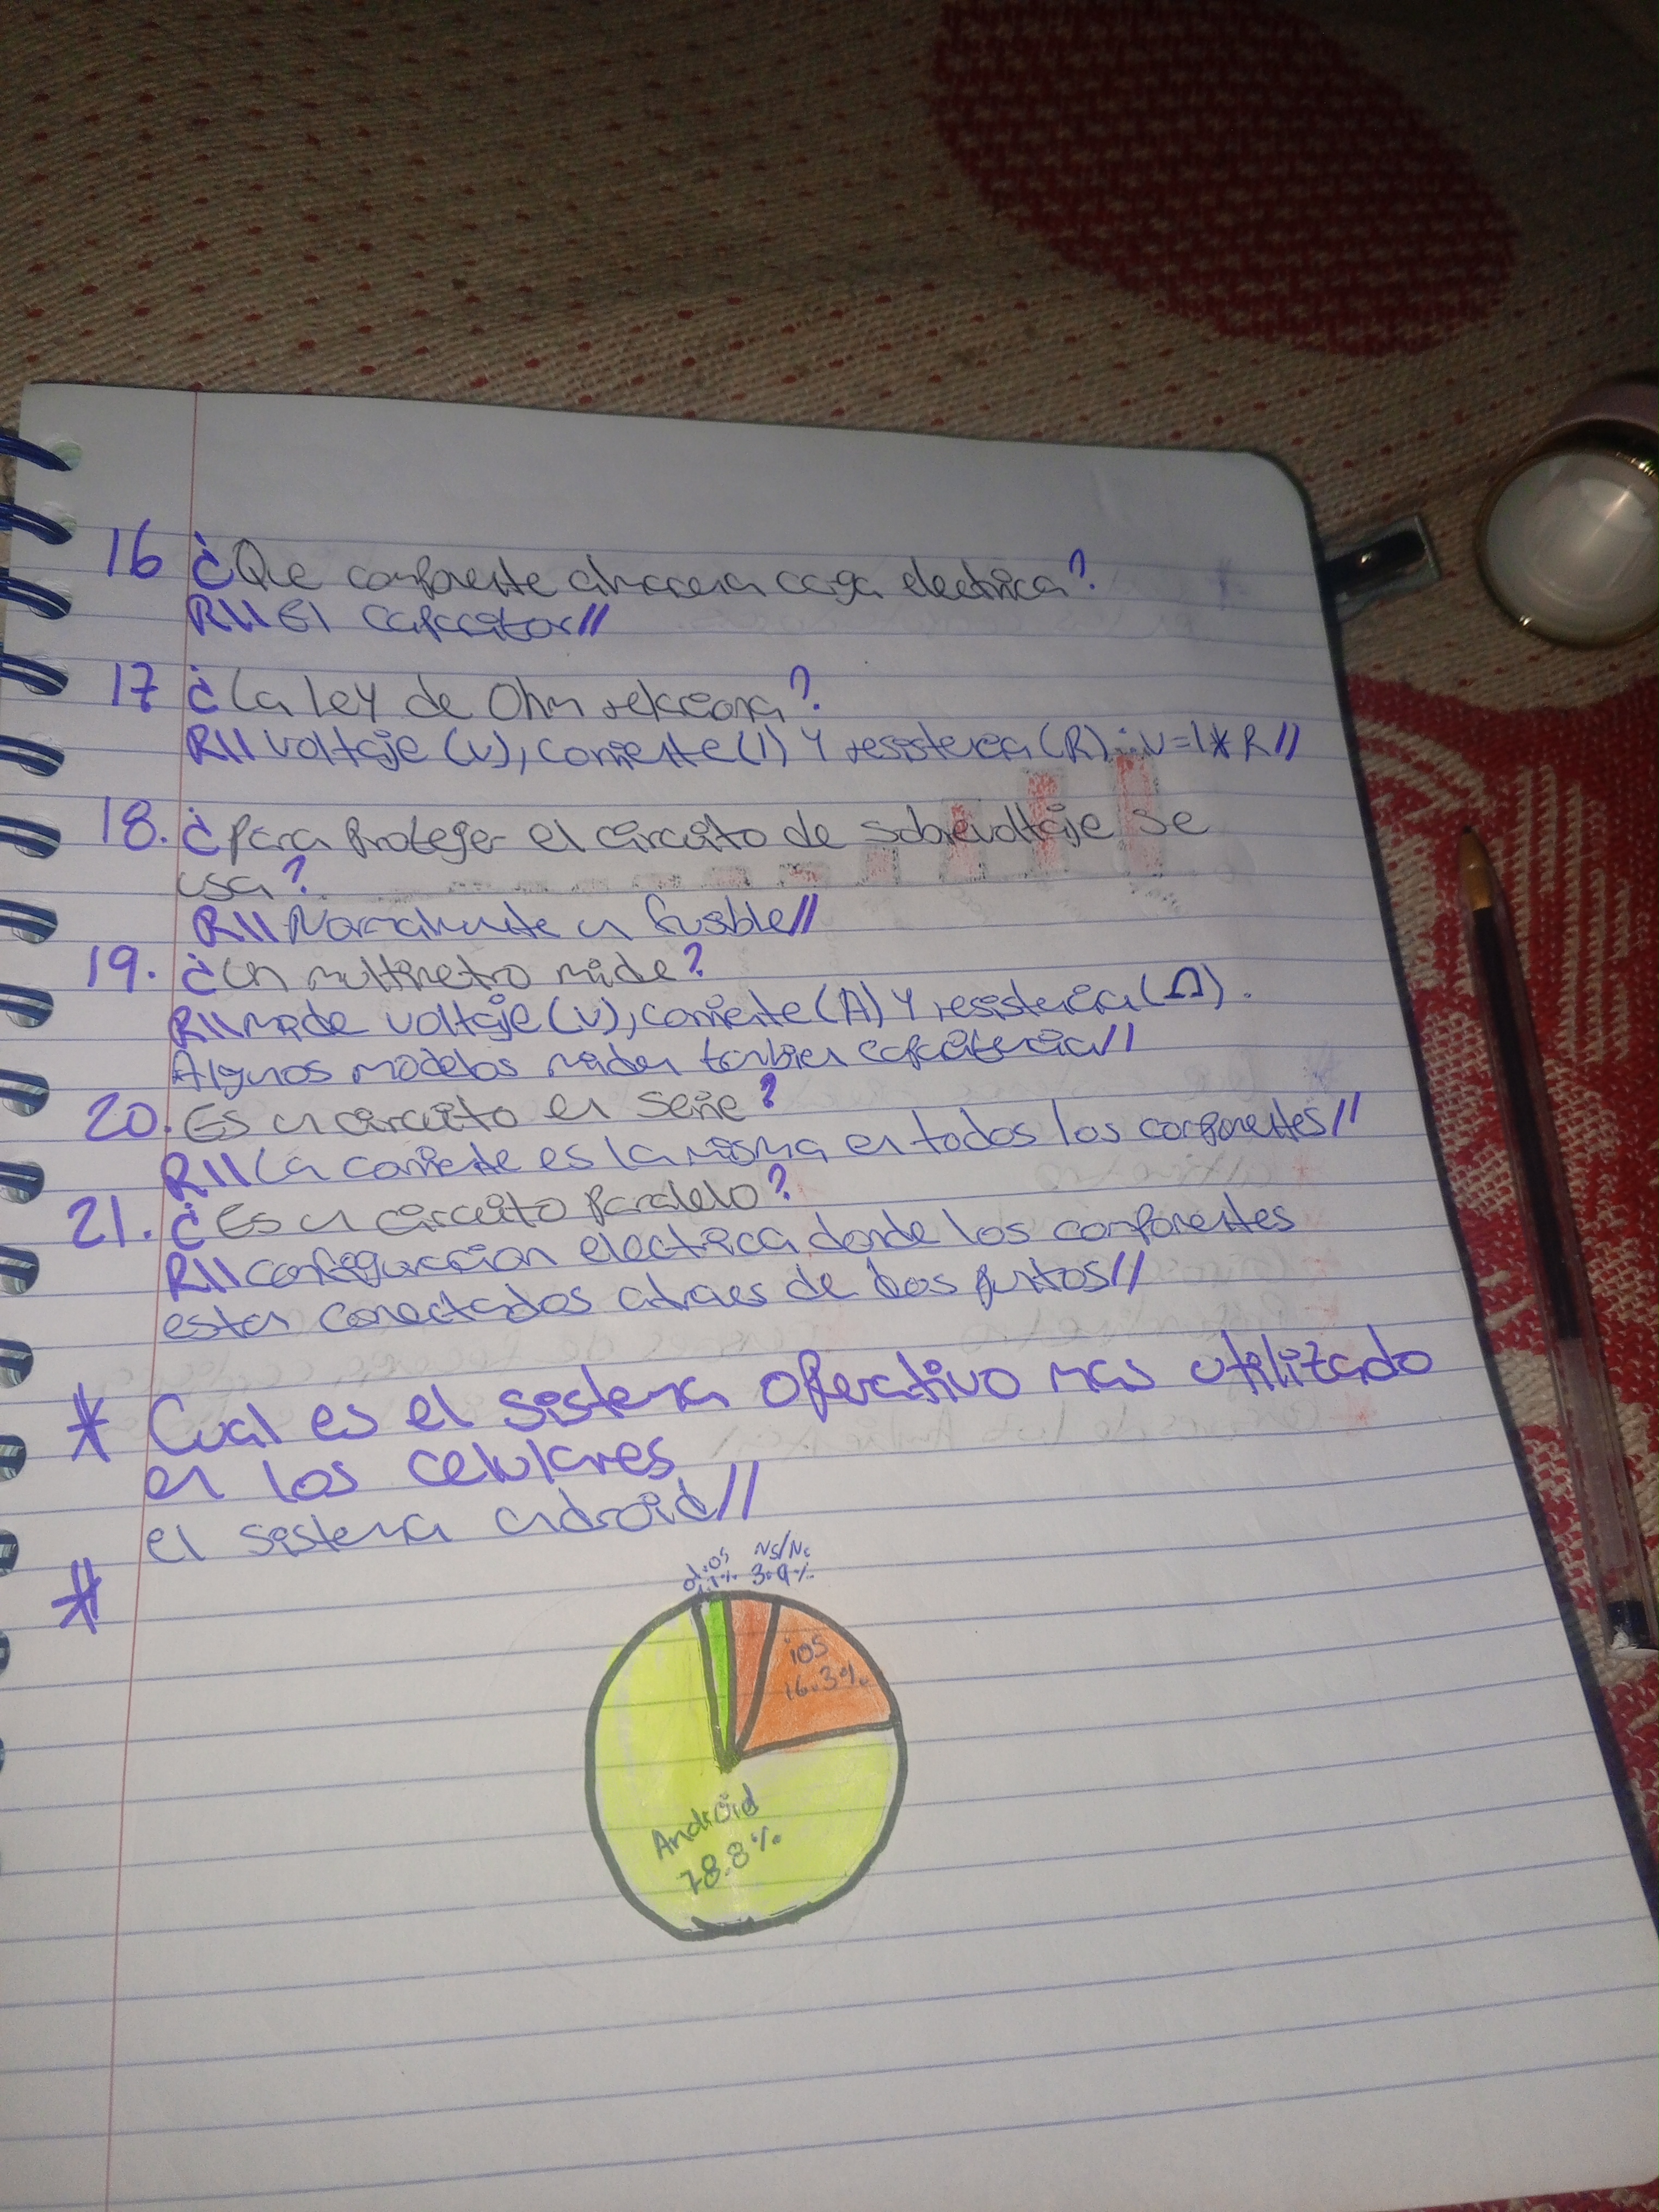 16 ¿Que componente almacena carga electrica?
R\\ El Capacitor//
17 ¿La Ley de Ohm relaciona?
R\\ voltaje (v), corriente (I) Y resistencia (R) ∴ V=I*R//
18. ¿Para Proteger el circuito de sobrevoltaje se
usa?
R\\ Normalmente un fusible//
19. ¿Un multimetro mide?
R\\ mide voltaje (v), corriente (A) Y resistencia (Ω).
Algunos modelos miden tambien capacitancia//
20. Es un circuito en serie?
R\\ La corriente es la misma en todos los componentes//
21. ¿Es un circuito Paralelo?
R\\ configuracion electrica donde los componentes
estan conectados atraes de dos puntos//
* Cual es el sistema operativo mas utilizado
en los celulares
el sistema android//
*
Ns/Nc
3.9%
iOS
16.3%
Android
78.8%